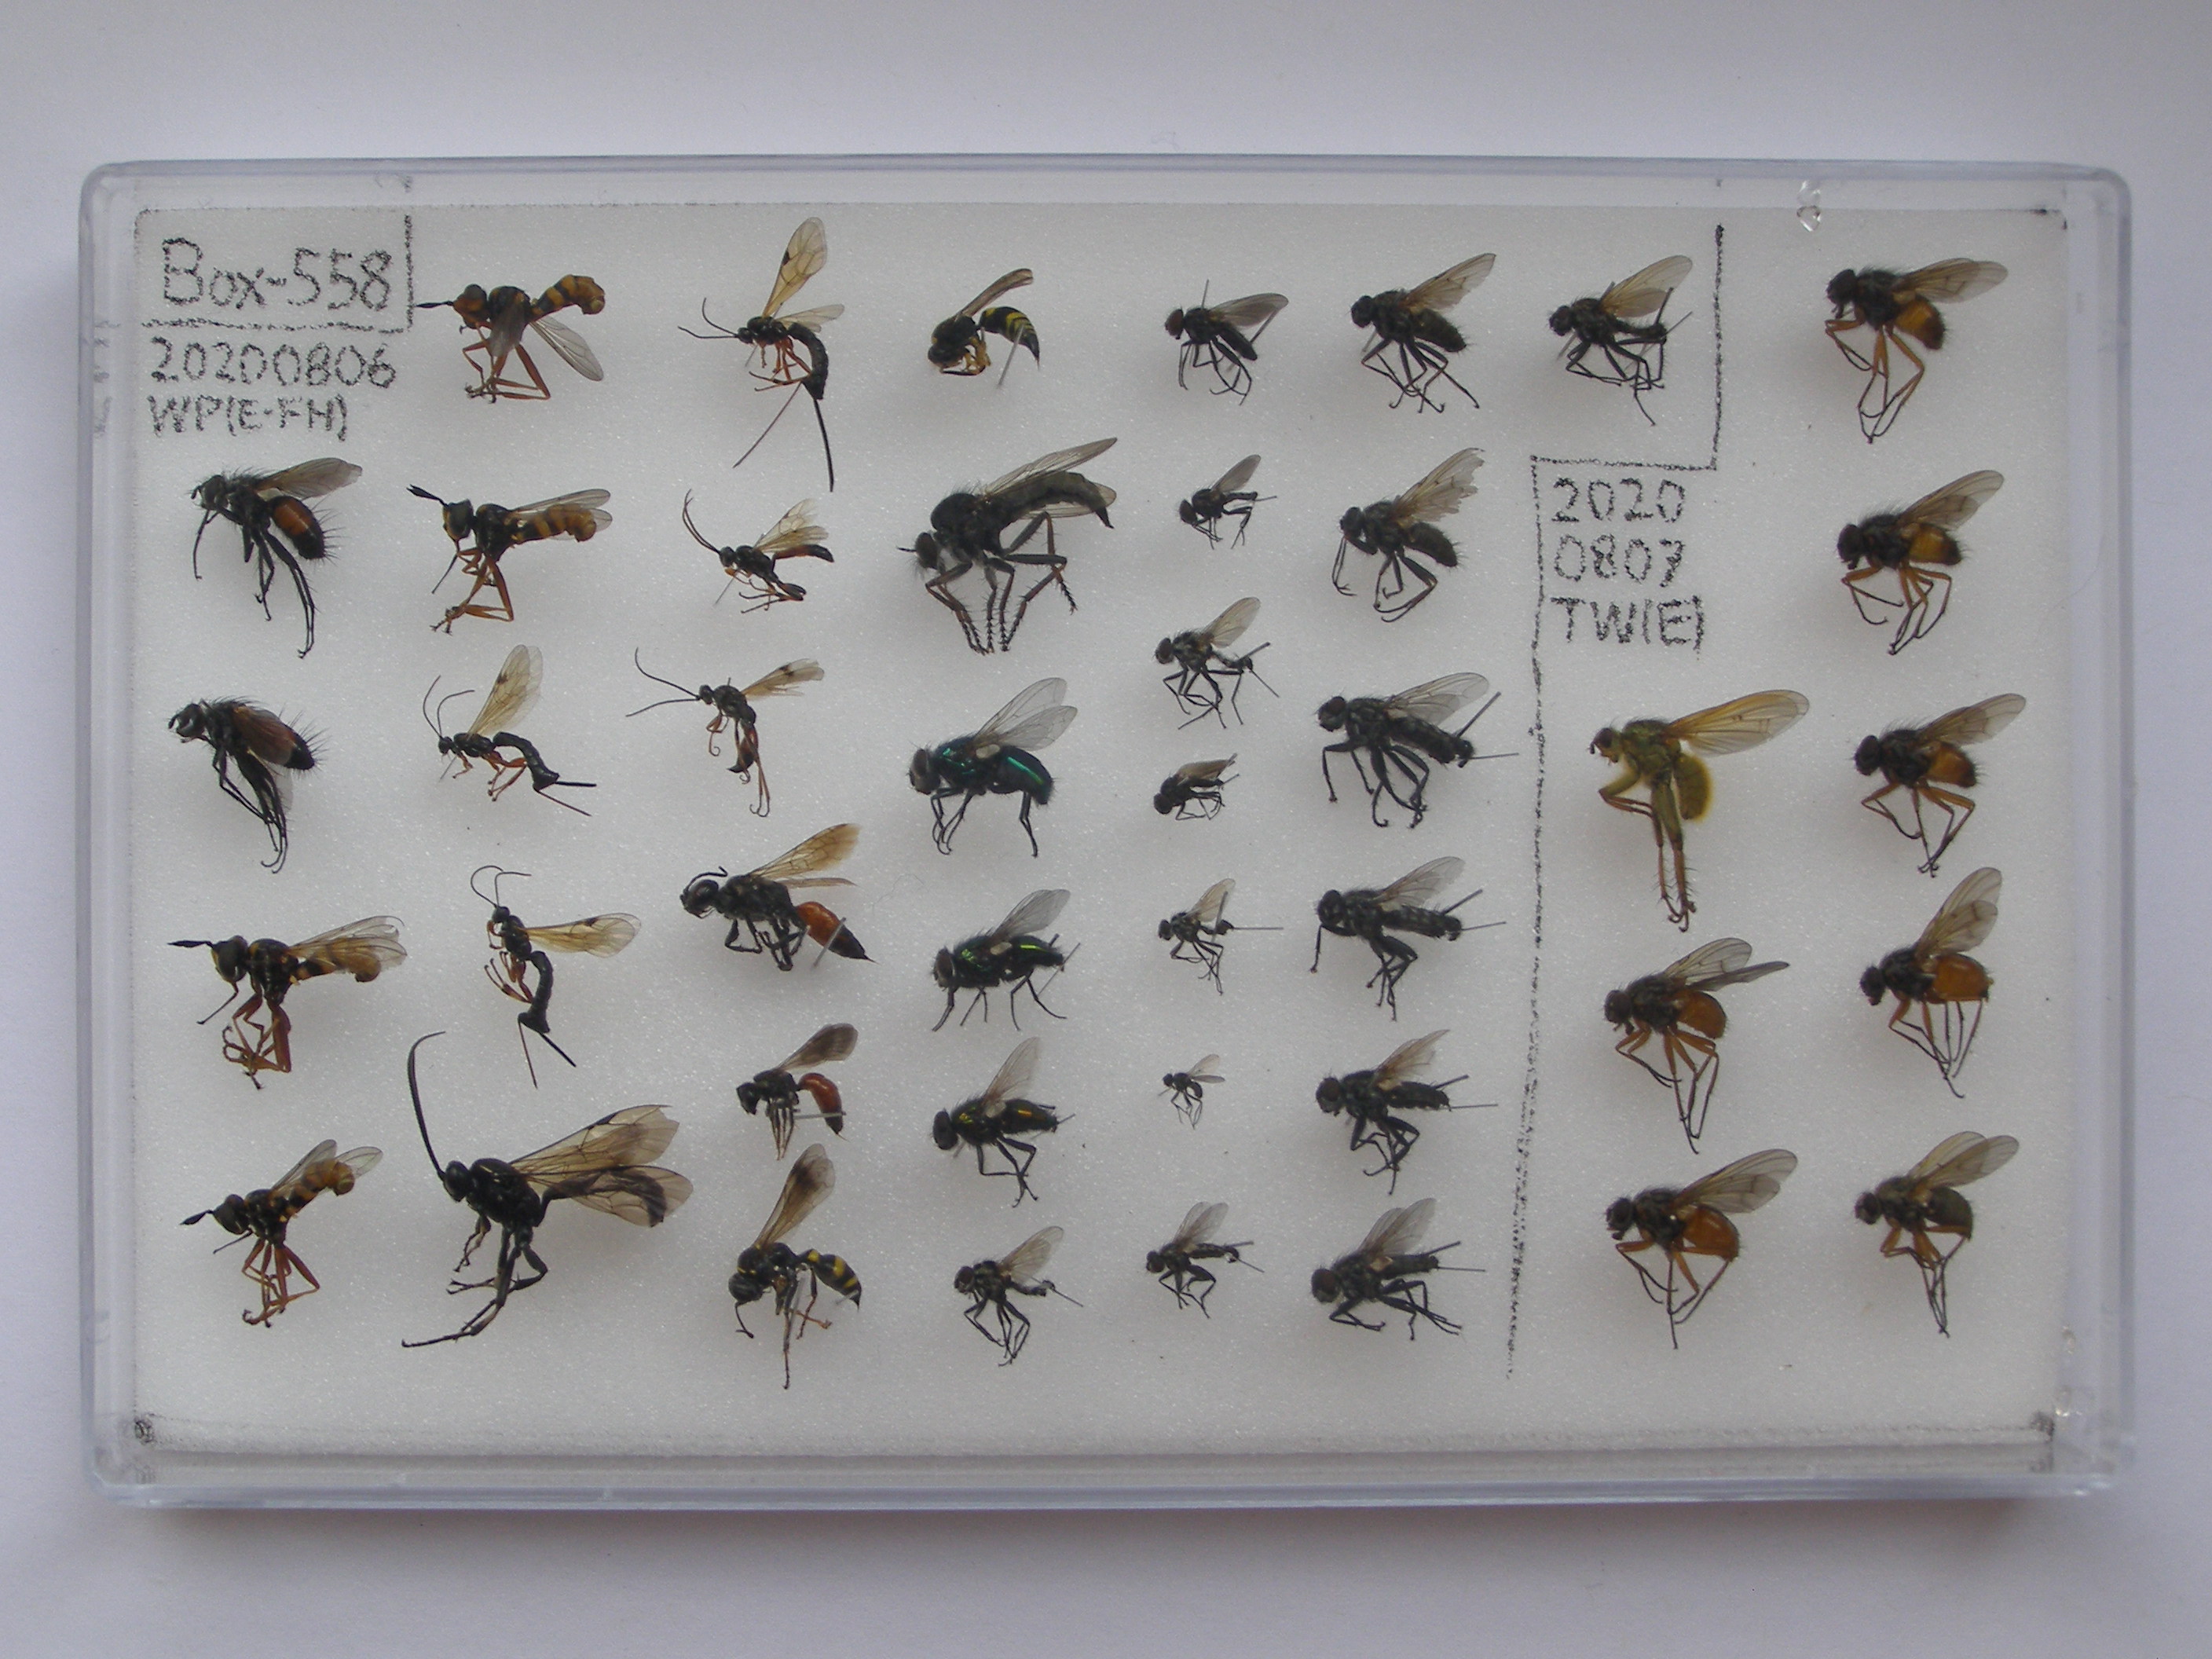 Box-558
20200806
WP(E-FH)
2020
0807
TW(E)